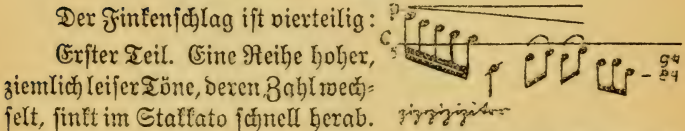 Der Finkenschlag ist vierteilig:
Erster Teil. Eine Reihe hoher,
ziemlich leiser Töne, deren Zahl wech-
selt, sinkt im Stakkato schnell herab.
p
C
5
g4
e4